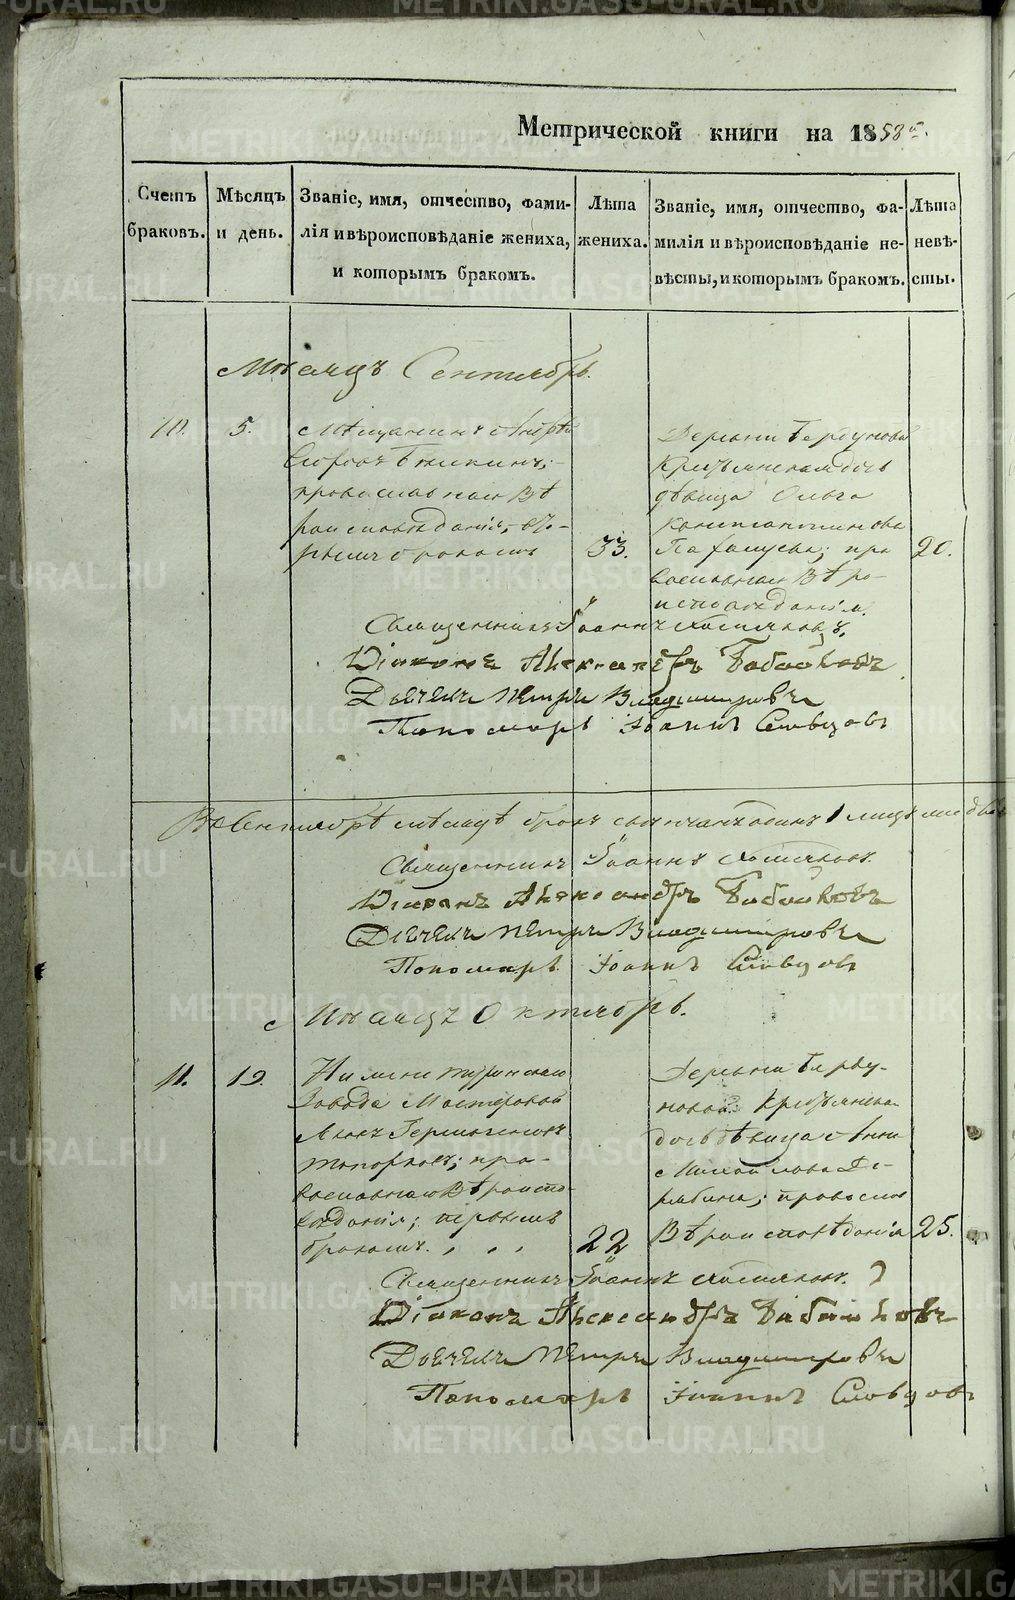 Метрической книги на 1858й.
Счетъ браковъ.
Мѣсяцъ и день.
Званіе, имя, отчество, фами-
лія и вѣроисповѣданіе жениха,
и которымъ бракомъ.
Лѣта
жениха.
Званіе, имя, отчество, фа-
милія и вѣроисповѣданіе не-
вѣсты, и которымъ бракомъ.
Лѣта
невѣ-
сты.
Мѣсяцъ Сентябрь.
10. 5.
Мѣщанинъ Андрей
православнаго Вѣ
роисповѣданія,
рымъ бракомъ
33.
Деревни
Крестьянская дочь
дѣвица Ольга
Константинова
пра
вославнаго Вѣро-
исповѣданія.
20.
Священникъ Іоаннъ Хомяковъ.
Діаконъ Александръ Бабайловъ
Дьячекъ Петръ Владимировъ
Пономарь Іоаннъ Словцовъ
Въ Сентябрѣ мѣсяцѣ бракъ одинъ 1
Священникъ Іоаннъ Хомяковъ.
Діаконъ Александръ Бабайловъ
Дьячекъ Петръ Владимировъ
Пономарь Іоаннъ Словцовъ
Мѣсяцъ Октябрь.
11. 19.
Нижнетуринскаго
Завода Мастеровой
Топорковъ; пра-
вославнаго Вѣроиспо-
вѣданія; первымъ
бракомъ.
22
Деревни
Крестьянска
дочь дѣвица Анна
Михайлова
православ
Вѣроисповѣданія
25.
Священникъ Іоаннъ Хомяковъ.
Діаконъ Александръ Бабайловъ
Дьячекъ Петръ Владимировъ
Пономарь Іоаннъ Словцовъ
METRIKI.GASO-URAL.RU